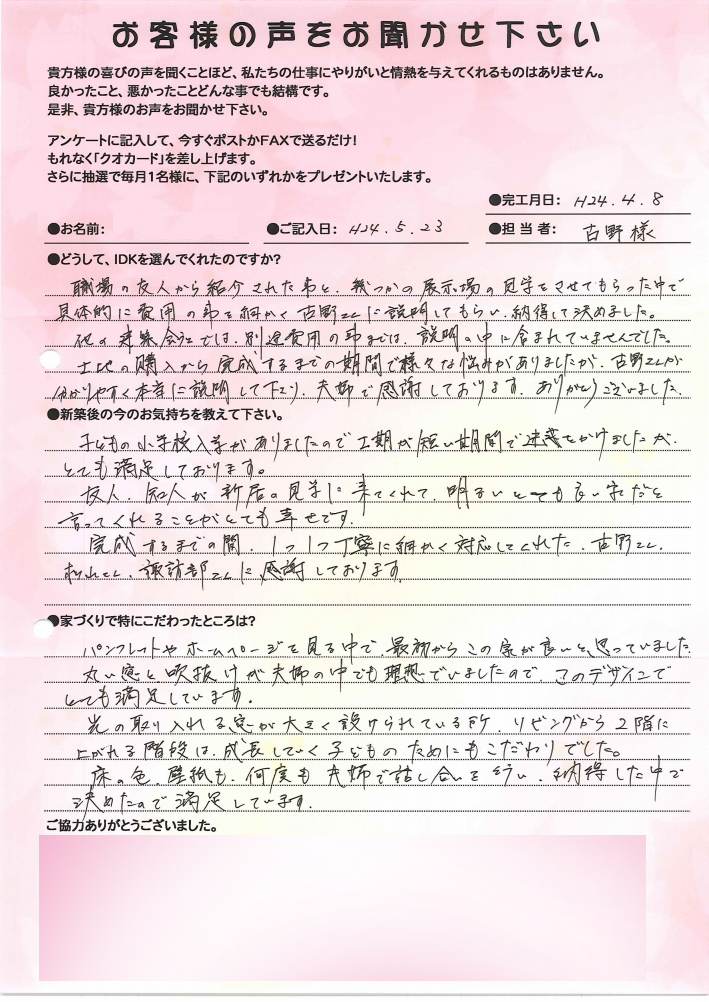 お客様の声をお聞かせ下さい
貴方様の喜びの声を聞くことほど、私たちの仕事にやりがいと情熱を与えてくれるものはありません。
良かったこと、悪かったことどんな事でも結構です。
是非、貴方様のお声をお聞かせ下さい。
アンケートに記入して、今すぐポストかFAXで送るだけ!
もれなく「クオカード」を差し上げます。
さらに抽選で毎月1名様に、下記のいずれかをプレゼントいたします。
●完工月日: H24.4.8
●お名前: ●ご記入日: H24.5.23 ●担当者: 古野様
●どうして、IDKを選んでくれたのですか?
職場の友人から紹介された事と、幾つかの展示場の見学をさせてもらった中で
具体的に費用の事を細かく古野さんに説明してもらい、納得して決めました。
他の建築会社では、別途費用の事までは、説明の中に含まれていませんでした。
土地の購入から完成するまでの期間で様々な悩みがありましたが、古野さんが
分かりやすく本当に説明して下さり、夫婦で感謝しております。ありがとうございました。
●新築後の今のお気持ちを教えて下さい。
子どもの小学校入学がありましたので工期が短い期間で迷惑をかけましたが、
とても満足しております。
友人、知人が新居の見学に来てくれて、明るいとても良い家だと
言ってくれることがとても幸せです。
完成するまでの間、1つ1つ丁寧に細かく対応してくれた、古野さん、
さん、諏訪部さんに感謝しております。
●家づくりで特にこだわったところは?
パンフレットやホームページを見る中で、最初からこの家が良いと思っていました。
丸い窓と吹抜けが夫婦の中でも理想でいましたので、このデザインで
とても満足しています。
光の取り入れる窓が大きく設けられている所、リビングから2階に
上がれる階段は、成長していく子どものためにもこだわりでした。
床の色、壁紙も、何度も夫婦で話し合いを行い、納得した中で
決めたので満足しています。
ご協力ありがとうございました。